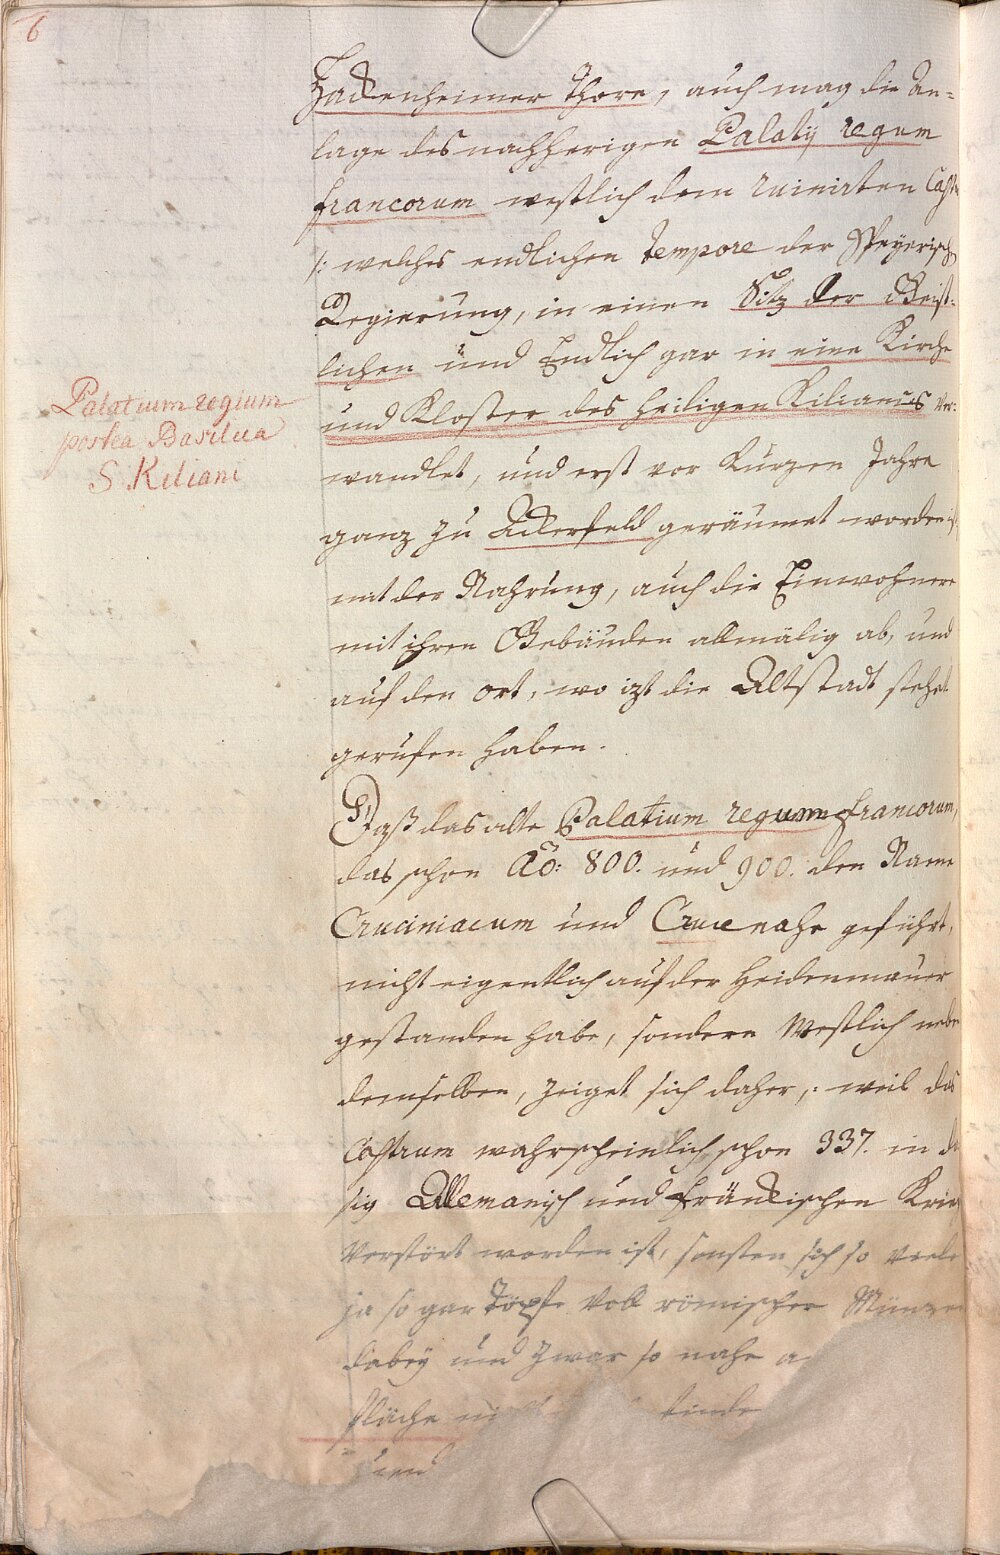 6
Hackenheimer Thore, auch mag die An-
lage des nachherigen Palatij regum
francorum westlich dem ruinirten Cast
/: welches endlichen tempore der Speyerisch
Regierung, in einen Sitz der Geist-
lichen und Endlich gar in eine Kirche
und Kloster des heiligen Kilianus ver-
Palatium regium
postea Basilica
S. Kiliani
wandlet, und erst vor kurzen Jahre
ganz zu Ackerfeld geräumet worden
mit der Nahrung, auch die Einwohnere
mit ihren Gebäuden allmälig ab, und
auf den ort, wo izt die Altstadt stehet
gerufen haben.
Daß das alte Palatium regum francorum,
das schon Aõ: 800. und 900. den Name
Cruciniacum und Crucenahe geführt,
nicht eigentlich auf der Heidenmauer
gestanden habe, sondern Westlich nebe
demselben, zeiget sich daher,: weil das
Castrum wahrscheinlich schon 337. in d
sig Allemanisch und fränckischen Krieg
Verstört worden ist, sonsten sich so viele
ja so gar Töpfe voll römischer Münzen
dabey und zwar so nahe a
fläche ni finde
und